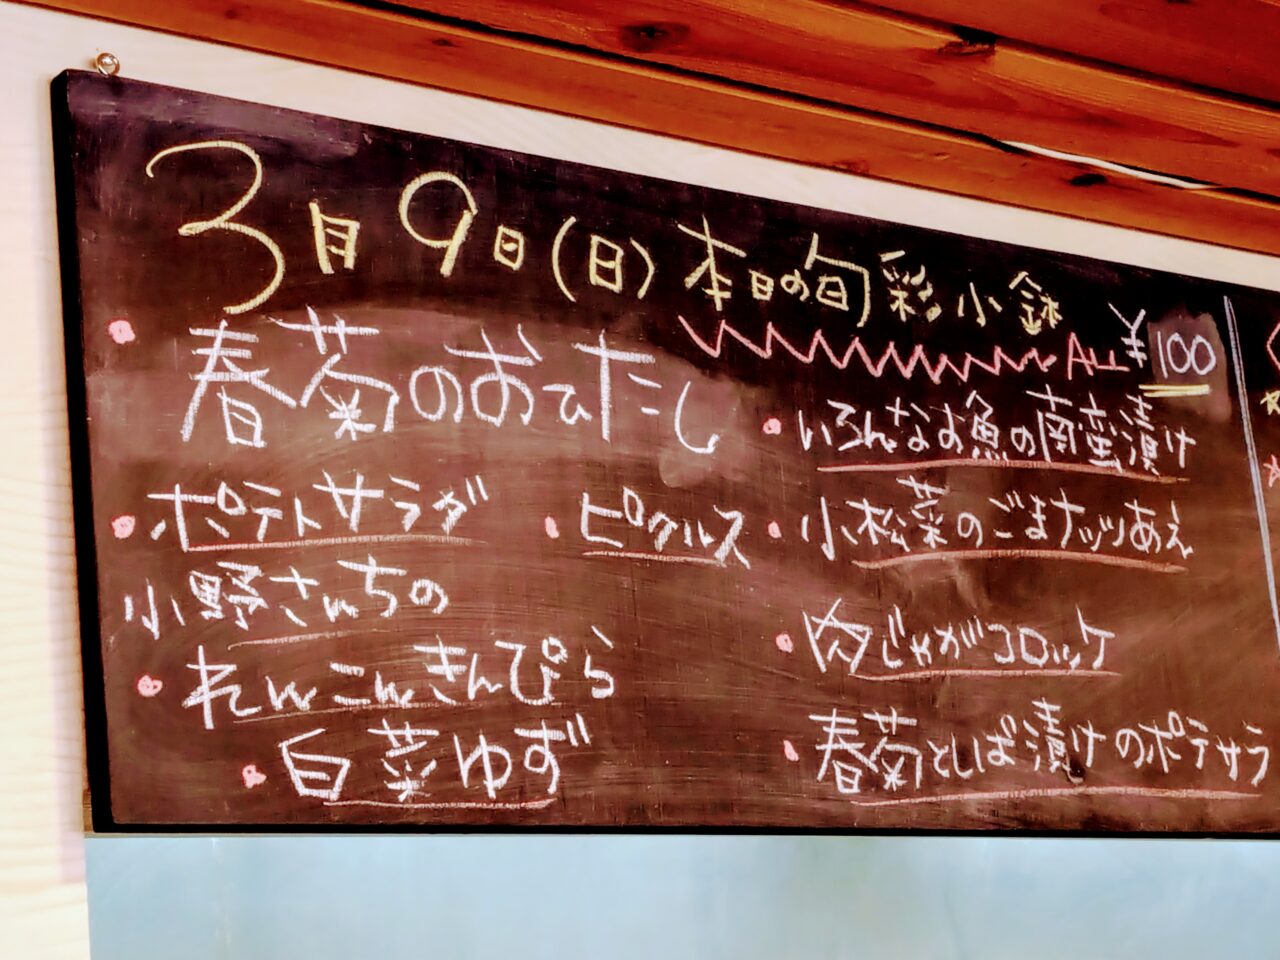 3月9日(日) 本日の旬彩小鉢
ALL ¥100
・春菊のおひたし
・ポテトサラダ
・ピクルス
小野さんちの
・れんこんきんぴら
・白菜ゆず
・いろんなお魚の南蛮漬け
・小松菜のごまナッツあえ
・肉じゃがコロッケ
・春菊としば漬けのポテサラ